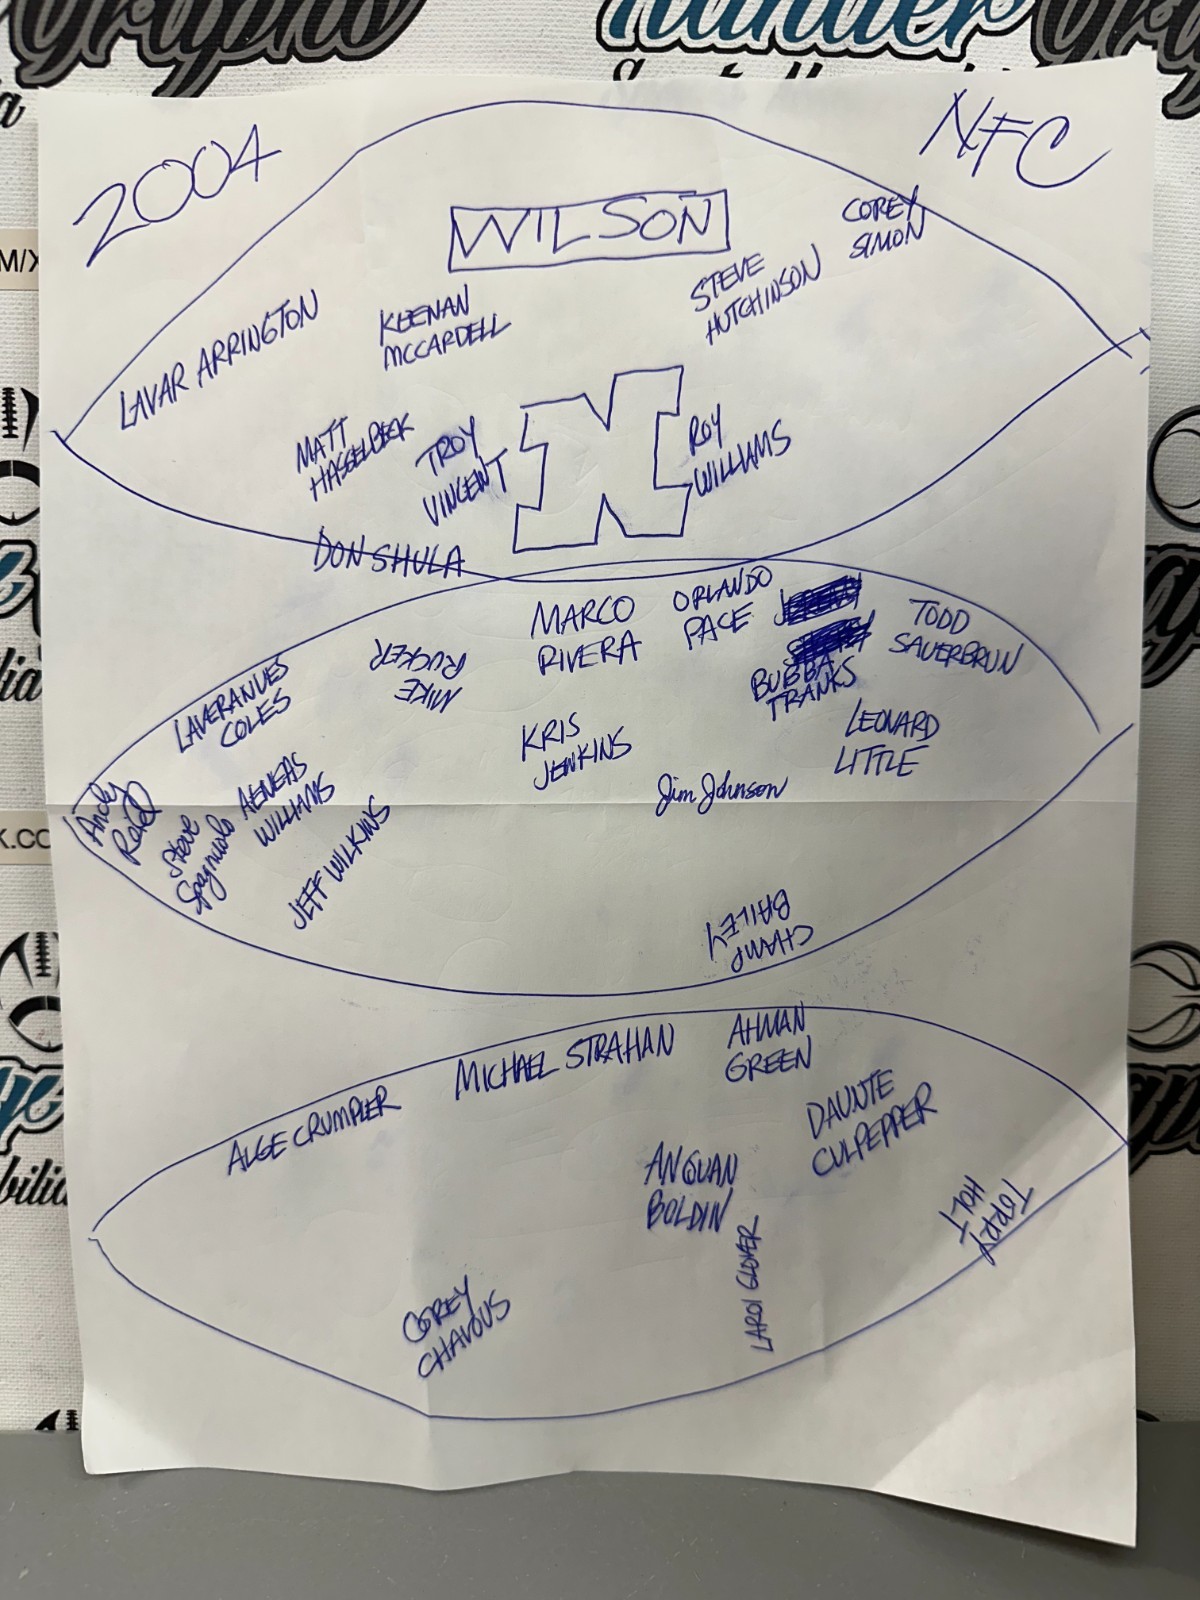 2004
NFC
WILSON
COREY
SIMON
STEVE
HUTCHINSON
KEENAN
MCCARDELL
LAVAR ARRINGTON
MATT
HASSELBECK
TROY
VINCENT
N
ROY
WILLIAMS
DON SHULA
MARCO
RIVERA
ORLANDO
PACE
BUBBA
TRANKS
TODD
SAUERBRUN
MIKE
RUCKER
LAVERANUES
COLES
KRIS
JENKINS
LEONARD
LITTLE
Jim Johnson
Andy
Reid
Steve
Spagnuolo
AENEAS
WILLIAMS
JEFF WILKINS
CHAMP
BAILEY
MICHAEL STRAHAN
AHMAN
GREEN
ALGE CRUMPLER
DAUNTE
CULPEPPER
ANQUAN
BOLDIN
TORRY
HOLT
LAROI GLOVER
COREY
CHAVOUS